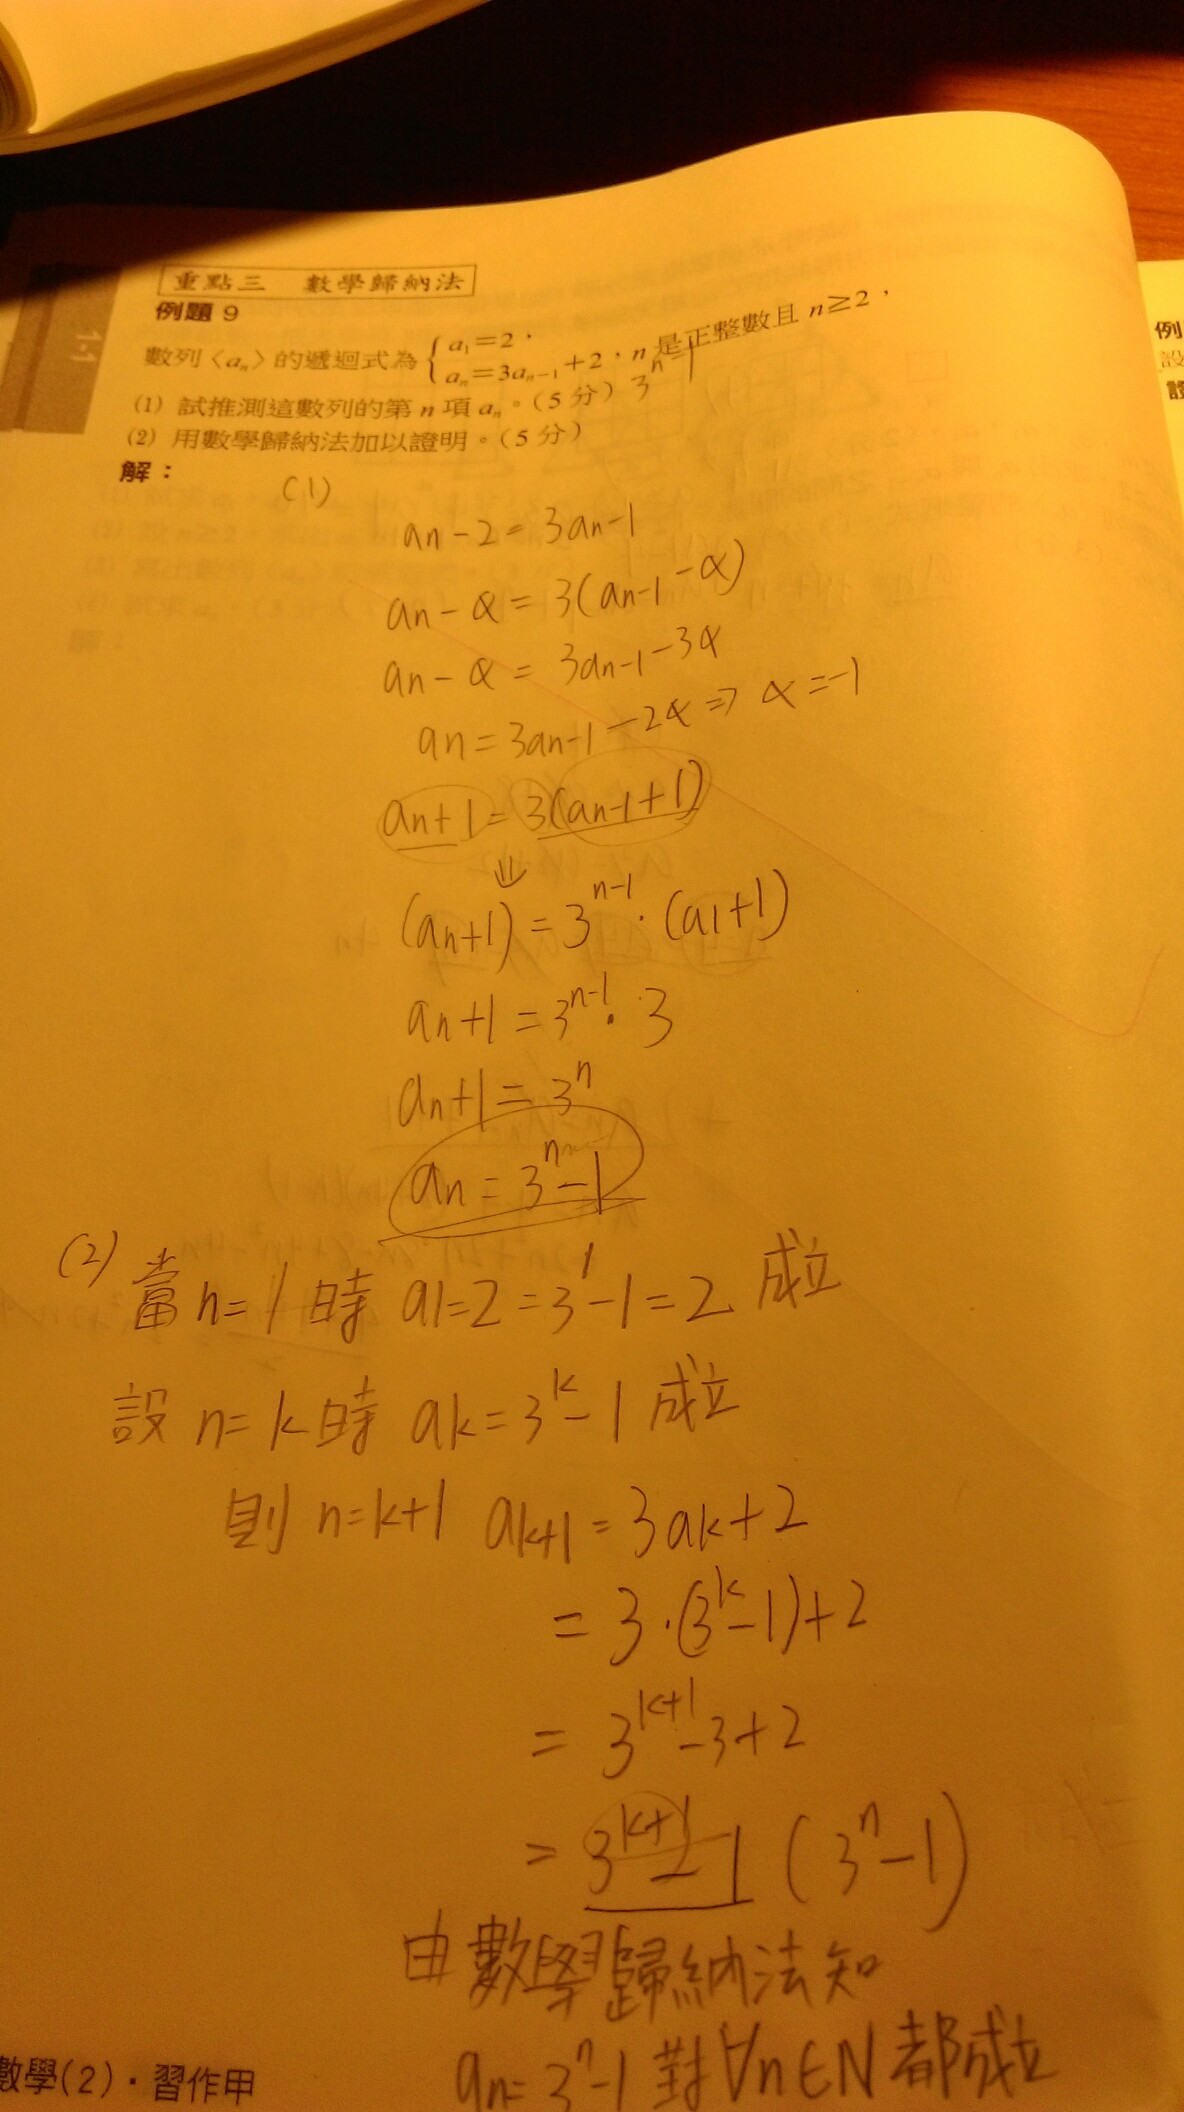 1-1
重點三 數學歸納法
例題 9
數列〈aₙ〉的遞迴式為 { a₁=2，
aₙ=3aₙ₋₁+2，n 是正整數且 n≥2，
(1) 試推測這數列的第 n 項 aₙ。(5 分) 3ⁿ-1
(2) 用數學歸納法加以證明。(5 分)
解：
(1)
an-2=3an-1
an-α=3(an-1-α)
an-α=3an-1-3α
an=3an-1-2α⇒α=-1
an+1=3(an-1+1)
⇓
(an+1)=3ⁿ⁻¹·(a1+1)
an+1=3ⁿ⁻¹·3
an+1=3ⁿ
an=3ⁿ-1
(2) 當 n=1 時 a1=2=3¹-1=2 成立
設 n=k 時 ak=3ᵏ-1 成立
則 n=k+1 ak+1=3ak+2
=3·(3ᵏ-1)+2
=3ᵏ⁺¹-3+2
=3ᵏ⁺¹-1 (3ⁿ-1)
由數學歸納法知
an=3ⁿ-1 對∀n∈N 都成立
數學(2)·習作甲
例
設
證